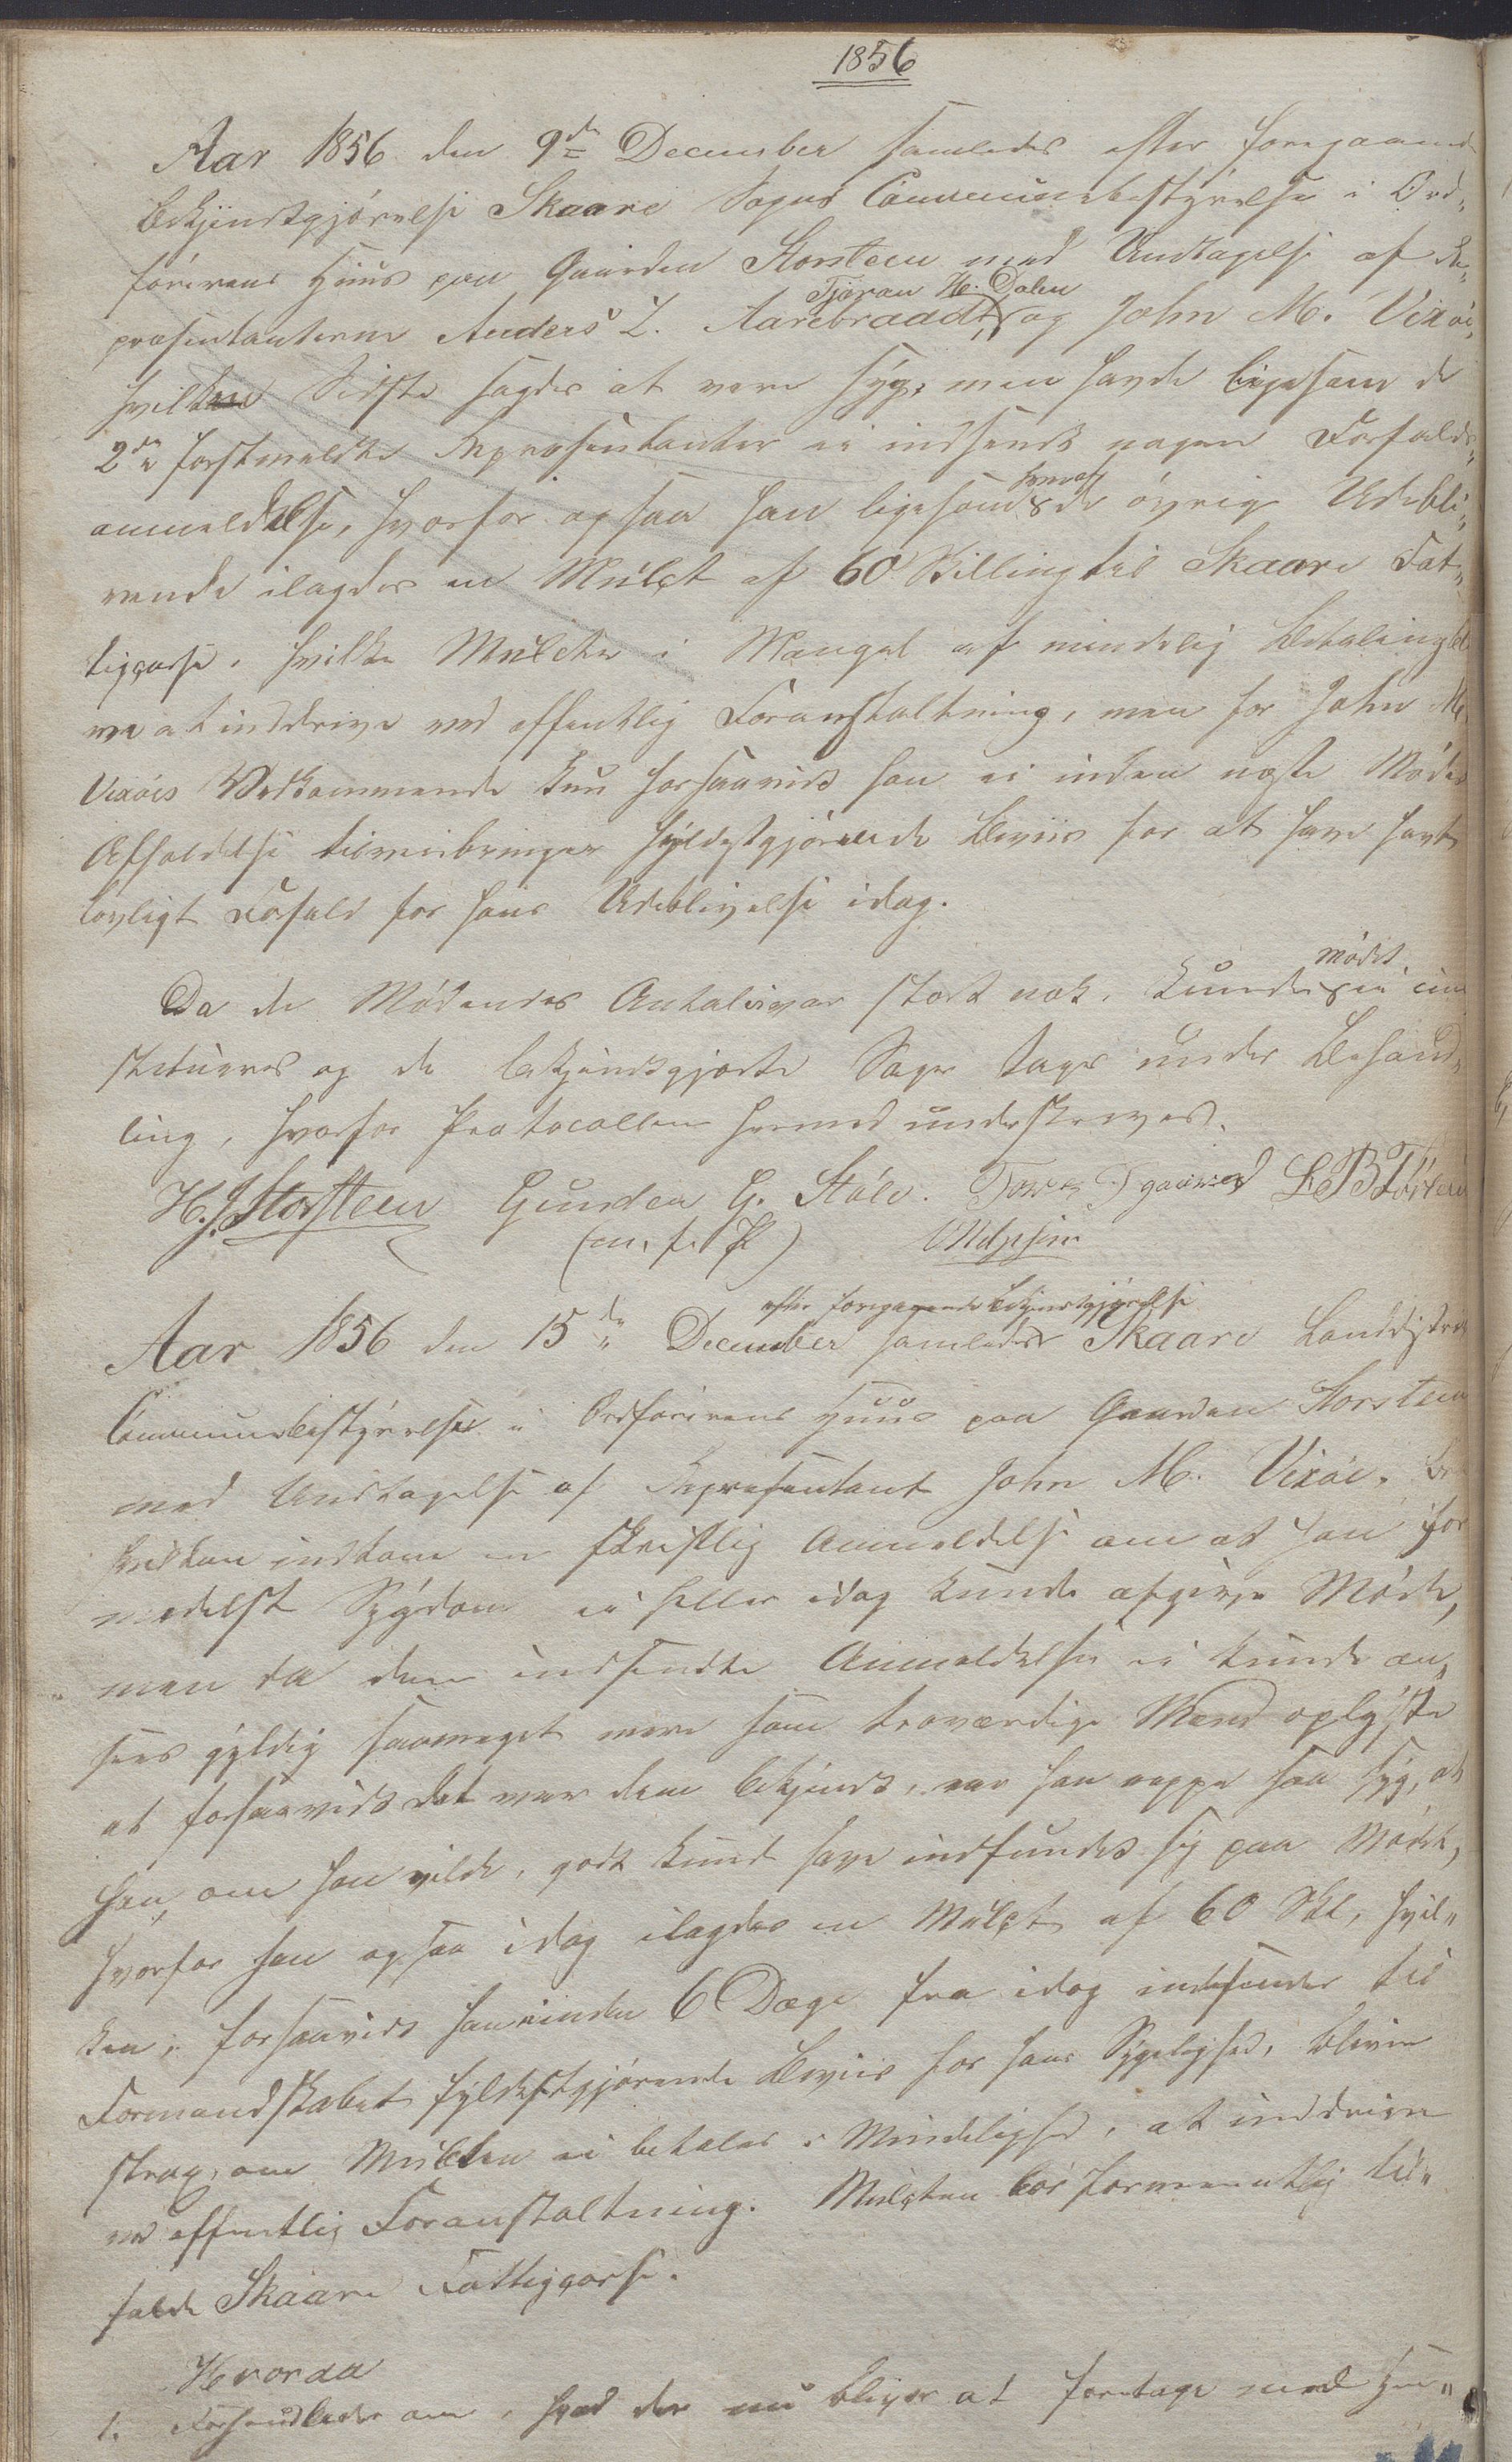 1856
Aar 1856 den 9de December samledes efter foregaaende
bekjendtgjørelse Skaare Sogns Communebestyrelse i Ord„
førerens Huus paa Gaarden Storsteen med Undtagelse af Re„
præsentanterne Anders L. Aarebraadt, Tjøran H. Dalen og John M. Vixøe,
hvilken Sidste sagdes at være syg, men havde ligesom de
2de førstmeldte Repræsentanter ei indsendt nogen Forfalds„
anmeldelse, hvorfor ogsaa han ligesom hver af de øvrige Udebli„
vende ilagdes en Mulct af 60 Skilling til Skaare Fat„
tigcasse, hvilke Mulcter i Mangel af mindelig Betaling bli
ve at inddrive ved offentlig Foranstaltning, men for John M.
Vixøes Vedkommende kun forsaavidt han ei inden næste Mødes
Afholdelse tilveiebringer fyldestgjørende Beviis for at have havt
lovligt Forfald for hans Udeblivelse idag.
Da de Mødendes Antal ei var stort nok, kunde Mødet ei con
stitueres og de bekjendtgjorte Sager tages under Behand„
ling, hvorfor Protocollen hermed underskrives.
H. J. Storsteen Gunder G. Støle. L B
(m. f. P)
Aar 1856 den 15de December efter foregaaende Bekjendtgjørelse samledes Skaare Landdistrikts
Communebestyrelse i Ordførerens Huus paa Gaarden Storsteen
med Undtagelse af Repræsentant John M. Vixøe. Fra
hvilken indkom en skriftlig Anmeldelse om at han for
medelst Sygdom ei heller idag kunde afgive Møde,
men da den indsendte Anmeldelse ei kunde an„
sees gyldig saameget mere som troværdige Mænd oplyste
at forsaavidt det var dem bekjendt, var han neppe saa syg, at
han, om han vilde, godt kunde have indfundet sig paa Mødet,
hvorfor han ogsaa idag ilagdes en Mulct af 60 Skl, hvil„
ken, forsaavidt han ei inden 6 Dage fra idag indsender til
Formandskabet fyldestgjørende Beviis for hans Sygelighed, bliver
strax, om Mulcten ei betales i Mindelighed, at inddrive
ved offentlig Foranstaltning. Mulcten bør formeentlig til„
falde Skaare Fattigcasse.
Hvorda
1. Forhandledes om, hvad der nu bliver at foretage med Hen„